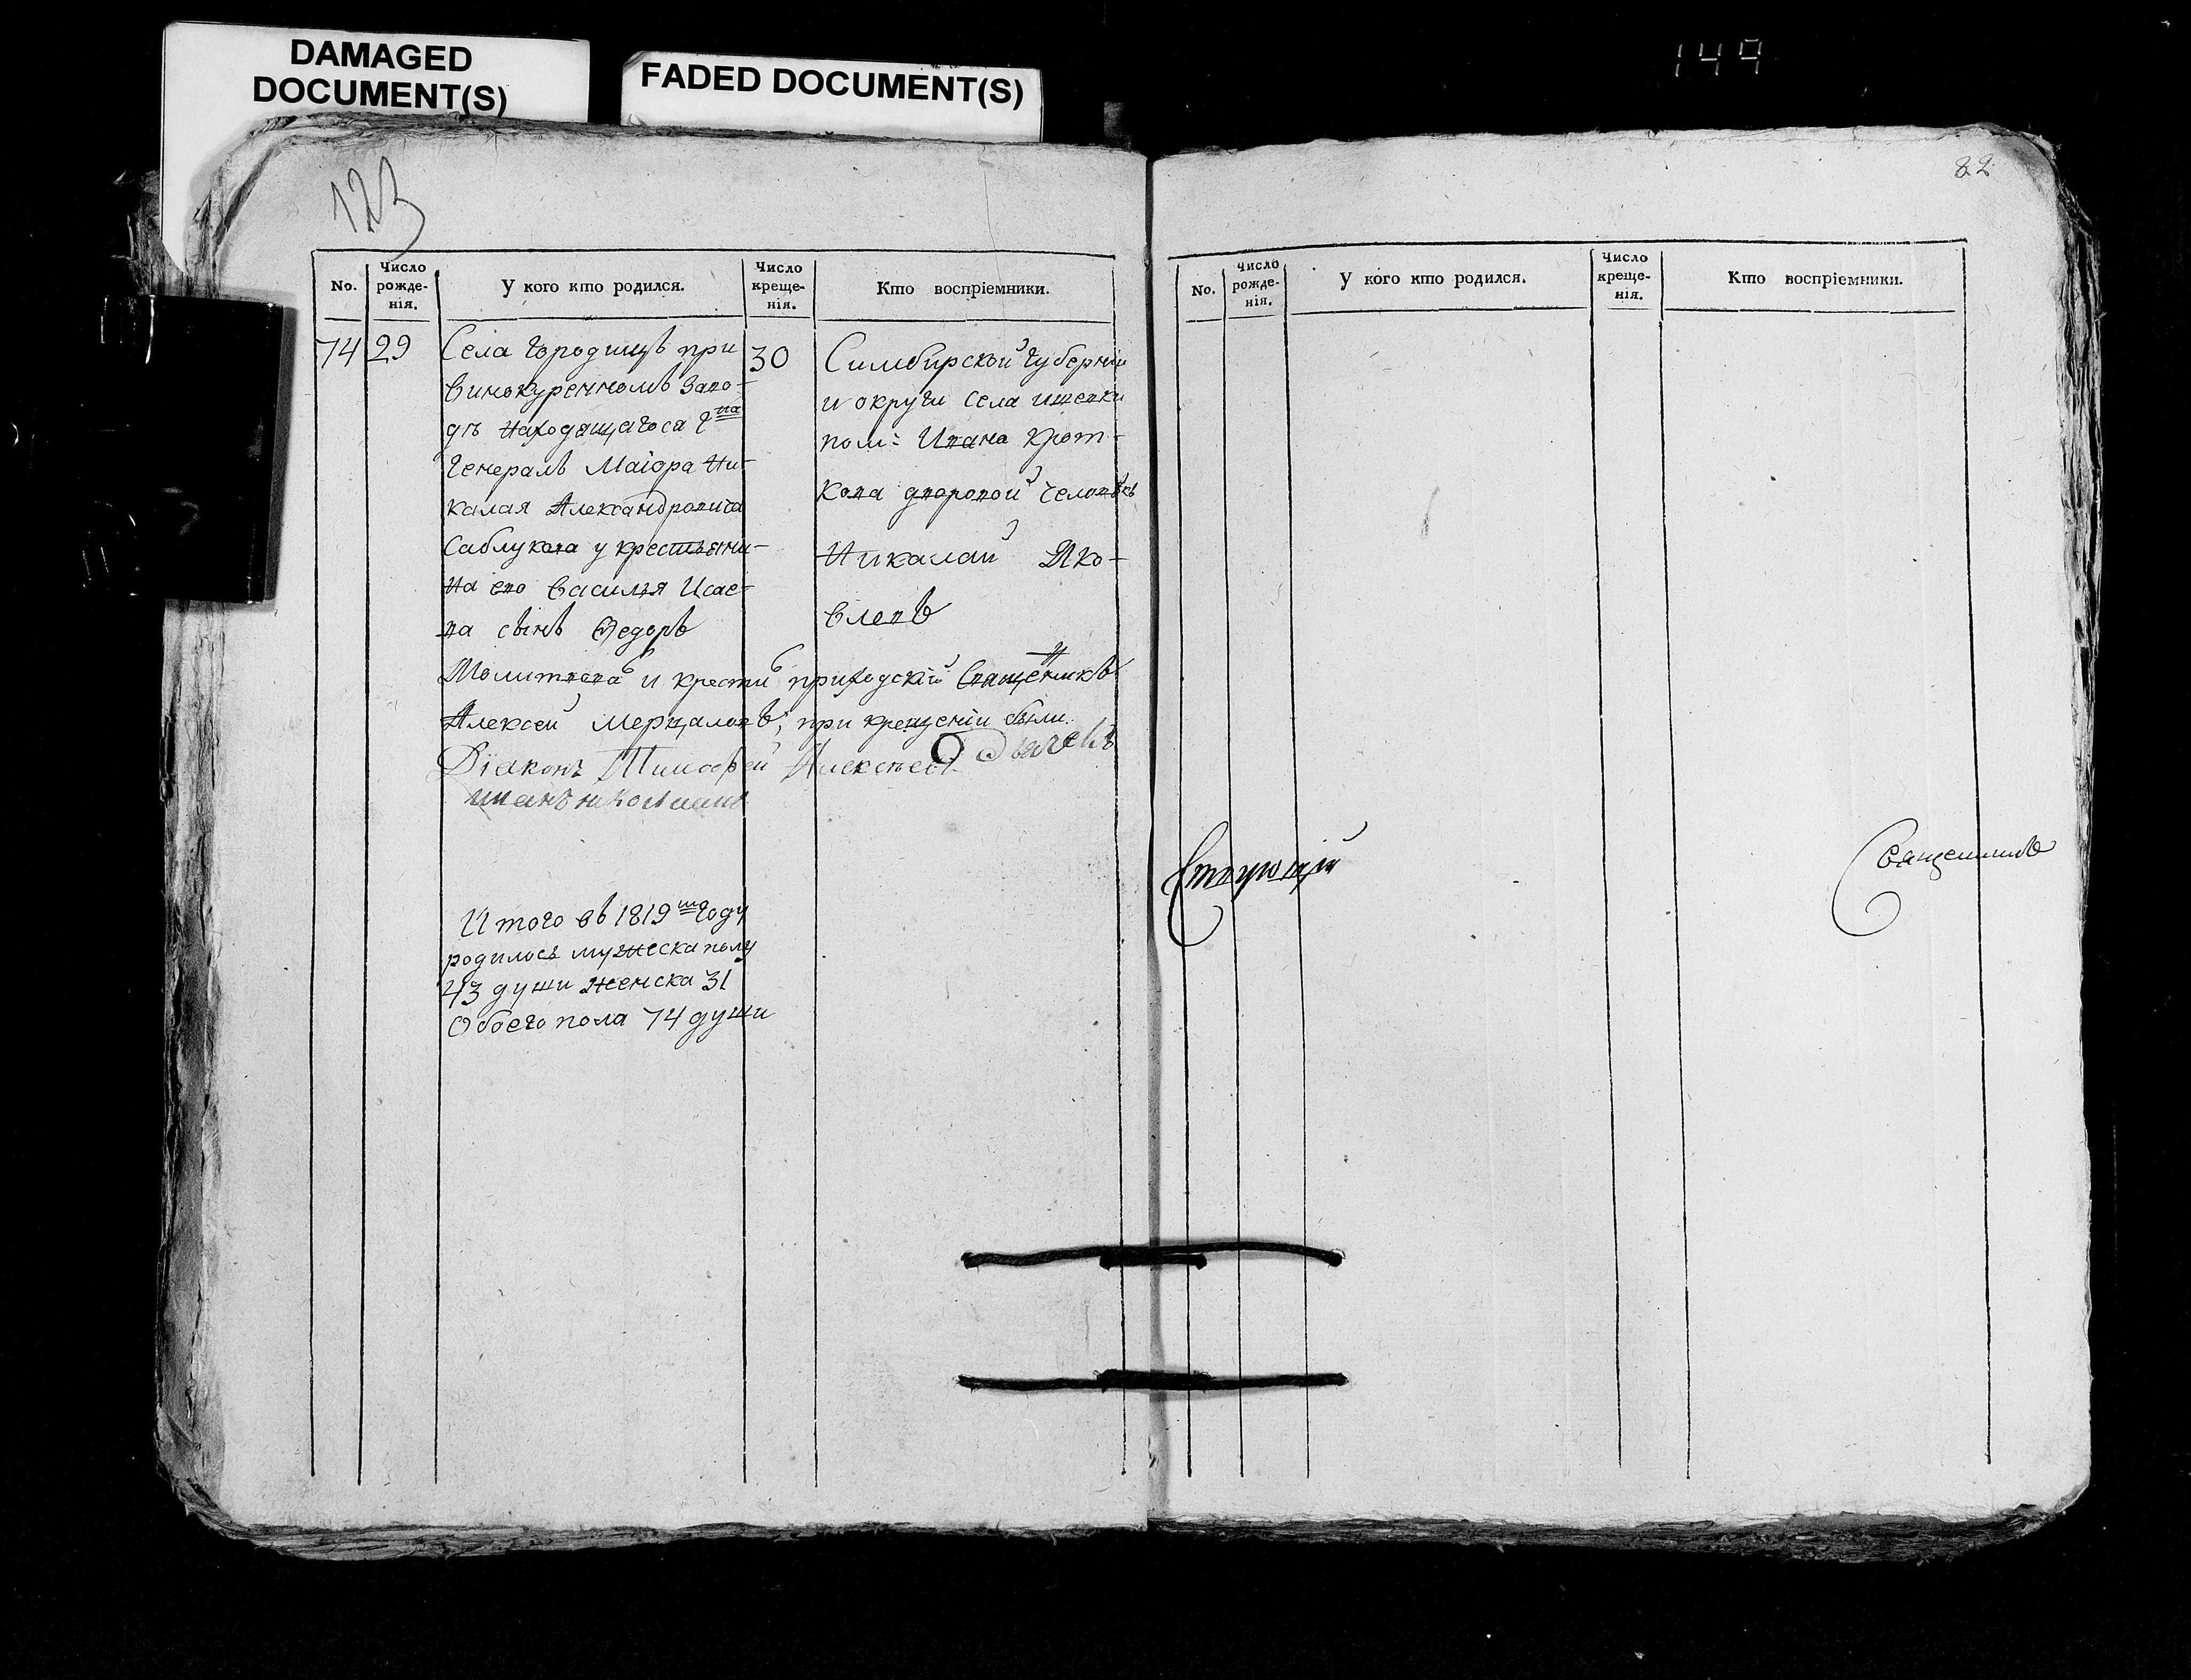 DAMAGED
DOCUMENT(S)
FADED DOCUMENT(S)
149
123
82
No.
Число рожде-нія.
У кого кто родился.
Число креще-нія.
Кто воспріемники.
74
29
Села Городищъ при
винокуренномъ заво-
дѣ находящагося Гна
Генералъ Маіора Ни-
калая Александровича
Саблукова у крестьяни-
на ево Василья Исае-
ва сынъ Ѳедоръ
30
Симбирской Губерніи
и округи села
пом: Ивана Крот-
кова дворовой человѣкъ
Никалай Яко-
влевъ
Молитвовалъ и крестилъ приходскій Священникъ
Алексей Мерцаловъ; при крещеніи были
Діаконъ Тимофей Алексеевъ
Дьячекъ
Итого въ 1819мъ Году
родилось мужеска полу
43 души женска 31
Обоего пола 74 души
No.
Число рожде-нія.
У кого кто родился.
Число креще-нія.
Кто воспріемники.
Священникъ